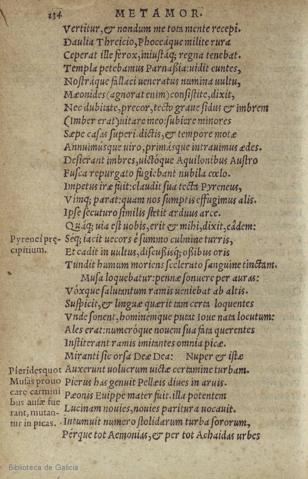 234 METAMOR.
Vertitur, & nondum me tota mente recepi.
Daulia Threicio, Phoceaque milite rura
Ceperat ille ferox, iniustaq; regna tenebat.
Templa petebamus Parnaßia: uidit euntes,
Nostraque fallaci ueneratus numina uultu,
Mæonides (agnorat enim) consistite, dixit,
Nec dubitate, precor, tecto graue sidus & imbrem
(Imber erat) uitare meo: subiere minores
Sæpe casas superi. dictis, & tempore motæ
Annuimusque uiro, primasque intrauimus ædes.
Desierant imbres, uictoque Aquilonibus Austro
Fusca repurgato fugiebant nubila cælo.
Impetus ire fuit: claudit sua tecta Pyreneus,
Vimq; parat: quam nos sumptis effugimus alis.
Ipse secuturo similis stetit arduus arce.
Quaq; uia est uobis, erit & mihi, dixit, eadem:
Pyrenei præ-
cipitium.
Seq; iacit uecors è summo culmine turris,
Et cadit in uultus, discußisq; oßibus oris
Tundit humum moriens scelerato sanguine tinctam.
Musa loquebatur: pennæ sonuere per auras:
Vóxque salutantum ramis ueniebat ab altis.
Suspicit, & linguæ querit tam certa loquentes
Vnde sonent, hominemque putat Ioue nata locutum:
Ales erat: numeróque nouem sua fata querentes
Institerant ramis imitantes omnia picæ.
Miranti sic orsa Deæ Dea: Nuper & istæ
Pierides quòt
Musas prouo
care carmini
bus ausæ fue
rant, mutan-
tur in picas.
Auxerunt uolucrum uictæ certamine turbam.
Pierus has genuit Pellæis diues in aruis.
Pæonis Euippe mater fuit. illa potentem
Lucinam nouies, nouies paritura uocauit.
Intumuit numero stolidarum turba sororum,
Pérque tot Aemonias, & per tot Achaidas urbes
Biblioteca de Galicia